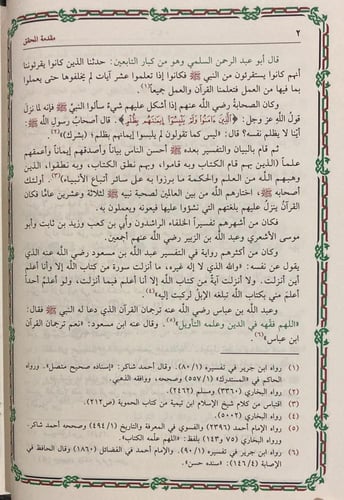 ٢ مقدمة المحقق
قال أبو عبد الرحمن السلمي وهو من كبار التابعين: حدثنا الذين كانوا يقرئوننا
أنهم كانوا يستقرئون من النبي ﷺ فكانوا إذا تعلموا عشر آيات لم يخلفوها حتى يعملوا
بما فيها من العمل فتعلمنا القرآن والعمل جميعاً(١).
وكان الصحابة رضي الله عنهم إذا أشكل عليهم شيء سألوا النبيَّ ﷺ فإنه لما نزل
قولُ الله عز وجل: ﴿الَّذِينَ ءَامَنُوا وَلَمْ يَلْبِسُوا إِيمَانَهُم بِظُلْمٍ﴾. قال أصحابُ رسول الله ﷺ:
أيُّنا لا يظلم نفسه؟ قال: «ليس كما تقولون لم يلبسوا إيمانهم بظلم؛ (بشرك)»(٢).
ثم قام بالبيان والتفسير بعده ﷺ أحسن الناس بياناً وأصدقهم إيماناً وأعمقهم
علماً (الذين بهم قام الكتاب وبه قاموا، وبهم نطق الكتاب، وبه نطقوا، الذين
وهبهم الله من العلم والحكمة ما برزوا به على سائر أتباع الأنبياء)(٣). أولئك
أصحابه ﷺ، اختارهم الله من بين العالمين لصحبة نبيه ﷺ لثلاثة وعشرين عامًا فكان
القرآن ينزل عليهم بلغتهم التي نشؤوا عليها فيعونه ويعملون به.
فكان من أشهرهم تفسيراً الخلفاء الراشدون وأبي بن كعب وزيد بن ثابت وأبو
موسى الأشعري وعبد الله بن الزبير رضي الله عنهم أجمعين.
وكان من أكثرهم رواية في التفسير عبد الله بن مسعود رضي الله عنه الذي
يقول عن نفسه: «والله الذي لا إله غيره، ما أنزلت سورة من كتاب الله إلا وأنا أعلم
أين أنزلت. ولا أنزلت آية من كتاب الله إلا أنا أعلم فيما أنزلت، ولو أعلمُ أحداً
أعلمَ مني بكتاب الله تبلغه الإبل لركبت إليه»(٤).
وعبد الله بن عباس رضي الله عنه ترجمان القرآن الذي دعا له النبي ﷺ فقال:
«اللهم فقّهه في الدين وعلمه التأويل»(٥). وقال عنه ابن مسعود: «نعم ترجمان القرآن
ابن عباس»(٦)
(١) رواه ابن جرير في تفسيره (٨٠/١). وقال أحمد شاكر: «إسناده صحيح متصل». ورواه
الحاكم في «المستدرك» (٥٥٧/١) وصححه، ووافقه الذهبي.
(٢) رواه البخاري (٣٣٦٠) ومسلم (٢٤٦٢)
(٣) اقتباس من كلام شيخ الإسلام ابن تيمية من كتاب الحموية (ص٢١٢).
(٤) رواه البخاري (٥٠٠٢)
(٥) رواه الإمام أحمد (٢٣٩٦) والفسوي في المعرفة والتاريخ (٤٩٤/١) وصححه أحمد شاكر.
ورواه البخاري (٧٥ و١٤٣) بلفظ: «اللهم علمه الكتاب».
(٦) رواه ابن جرير (٩٠/١). والإمام أحمد في الفضائل (١٨٦٠) وقال الحافظ في
الإصابة (١٤٦/٤): «سنده حسن».